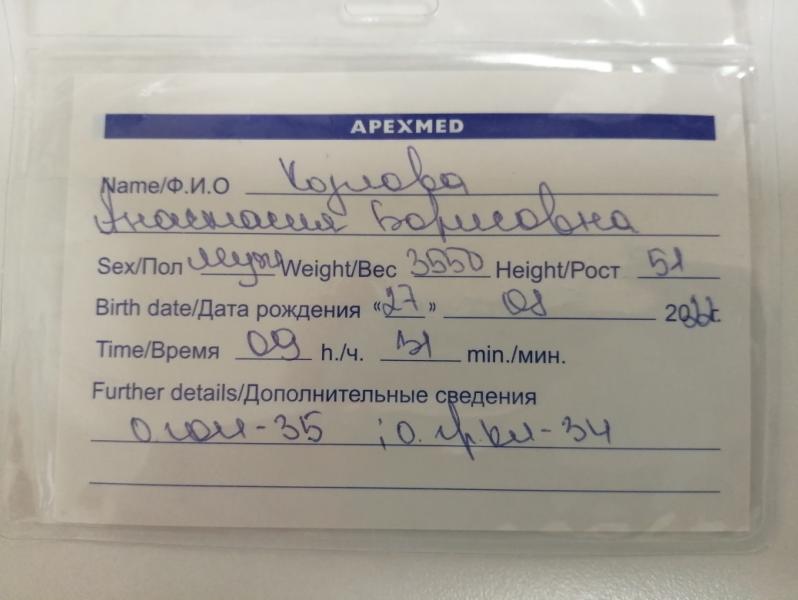 APEXMED
Name/Ф.И.О Козлова
Анастасия Борисовна
Sex/Пол муж Weight/Вес 3550 Height/Рост 51
Birth date/Дата рождения «27» 08 2022г.
Time/Время 09 h./ч. 31 min./мин.
Further details/Дополнительные сведения
О.гол-35 ; О.гр.кл-34